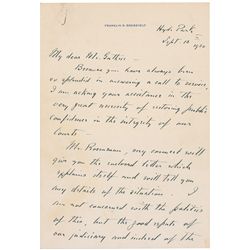 FRANKLIN D. ROOSEVELT
Hyde Park
Sept. 10
My dear Mr. Guthrie
Because you have always been
so splendid in answering a call to service,
I am asking your assistance in the
very great necessity of restoring public
confidence in the integrity of our
Courts —
Mr. Rosenman, my counsel will
give you the enclosed letter which
explains itself and will tell you
any details of the situation. I
am not concerned with the politics
of this, but the good repute of
our judiciary and indeed of the